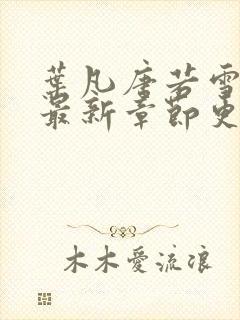 葉凡唐若雪
最新章節更
木木愛流浪